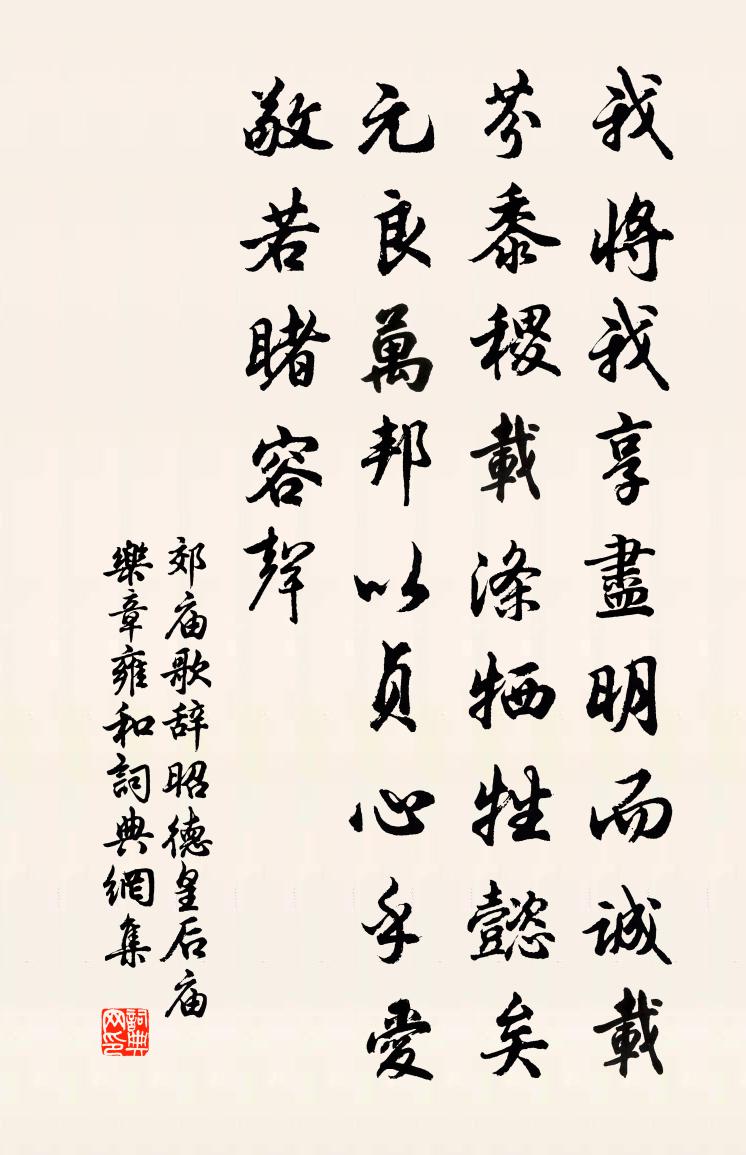 我將我享盡明而誠載
芬黍稷載滌牺牲懿矣
元良萬邦以貞心乎愛
敬若睹容聲
郊庙歌辞昭德皇后庙
樂章雍和詞典網集
詞典
网印